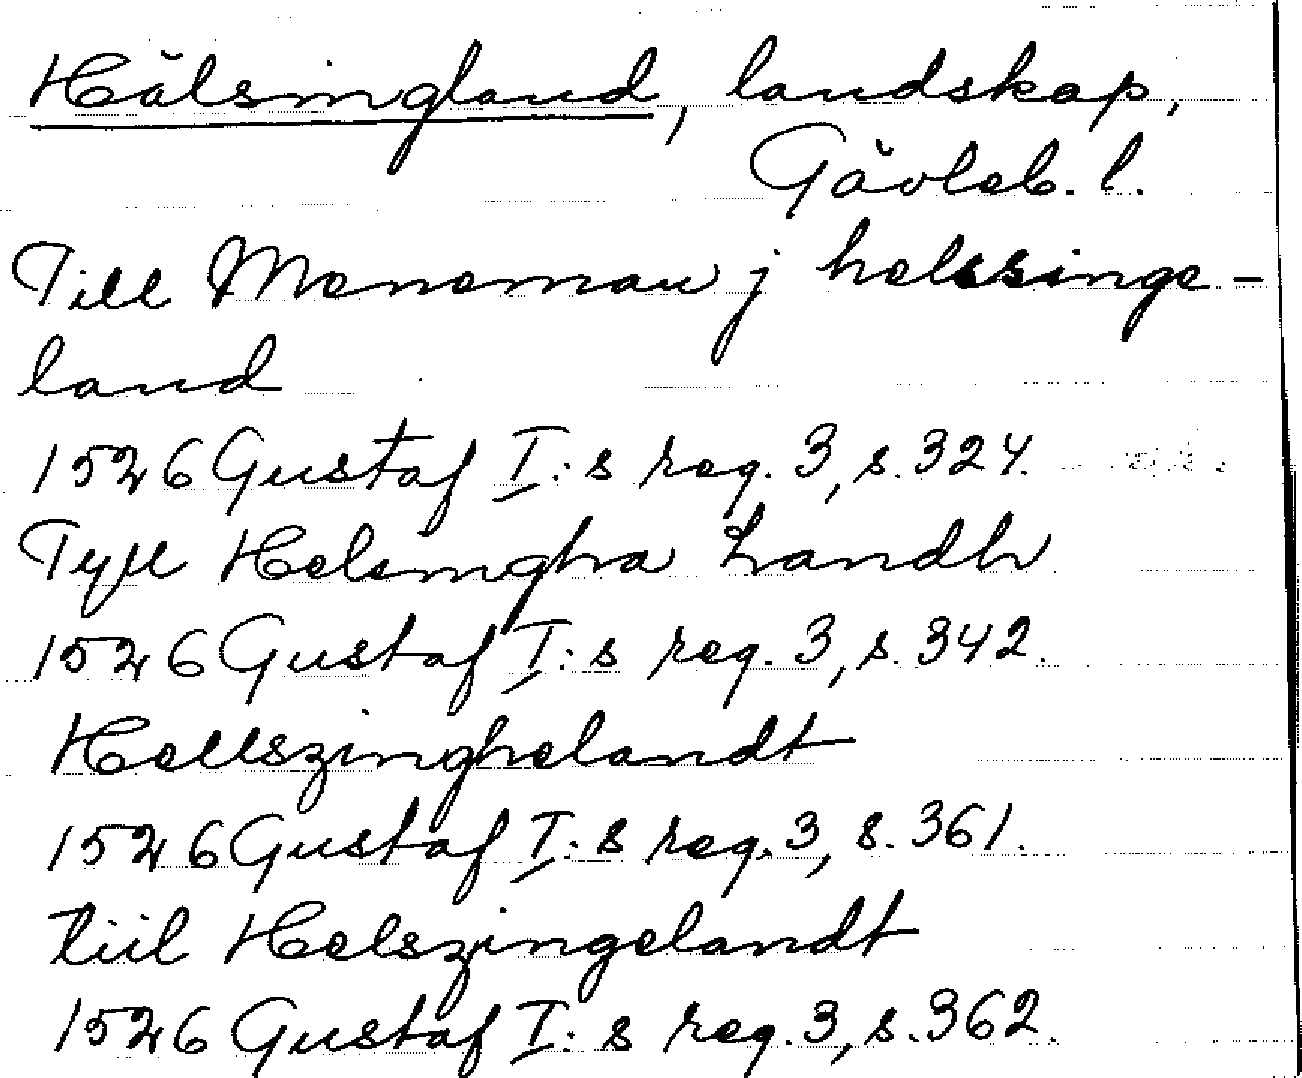 Hälsingland, landskap,
Gävleb. l.
Till Menemau j helssinge-
land
1526 Gustaf I:s reg. 3, s. 324.
Tyll Helsingha Landh
1526 Gustaf I:s reg. 3, s. 342.
Hellszinghelandt
1526 Gustaf I:s reg. 3, s. 361.
tiil Helszingelandt
1526 Gustaf I:s reg. 3, s. 362.